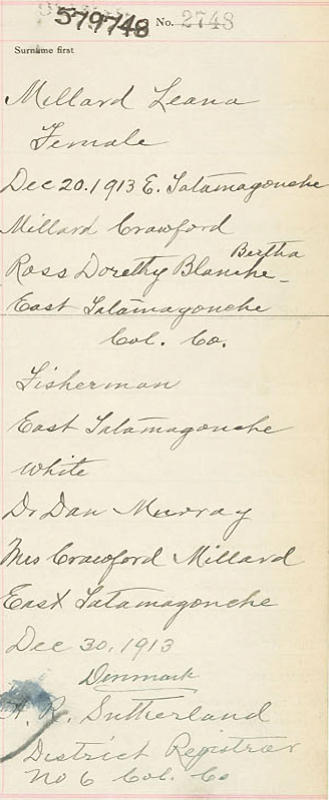 579748 No. 2748
Surname first
Millard Leana
Female
Dec 20. 1913 E. Tatamagouche
Millard Crawford
Bertha
Ross Dorethy Blanche
East Tatamagouche
Col. Co.
Fisherman
East Tatamagouche
White
Dr Dan Murray
Mrs Crawford Millard
East Tatamagouche
Dec 30, 1913
Denmark
R. Sutherland
District Registrar
No 6 Col. Co